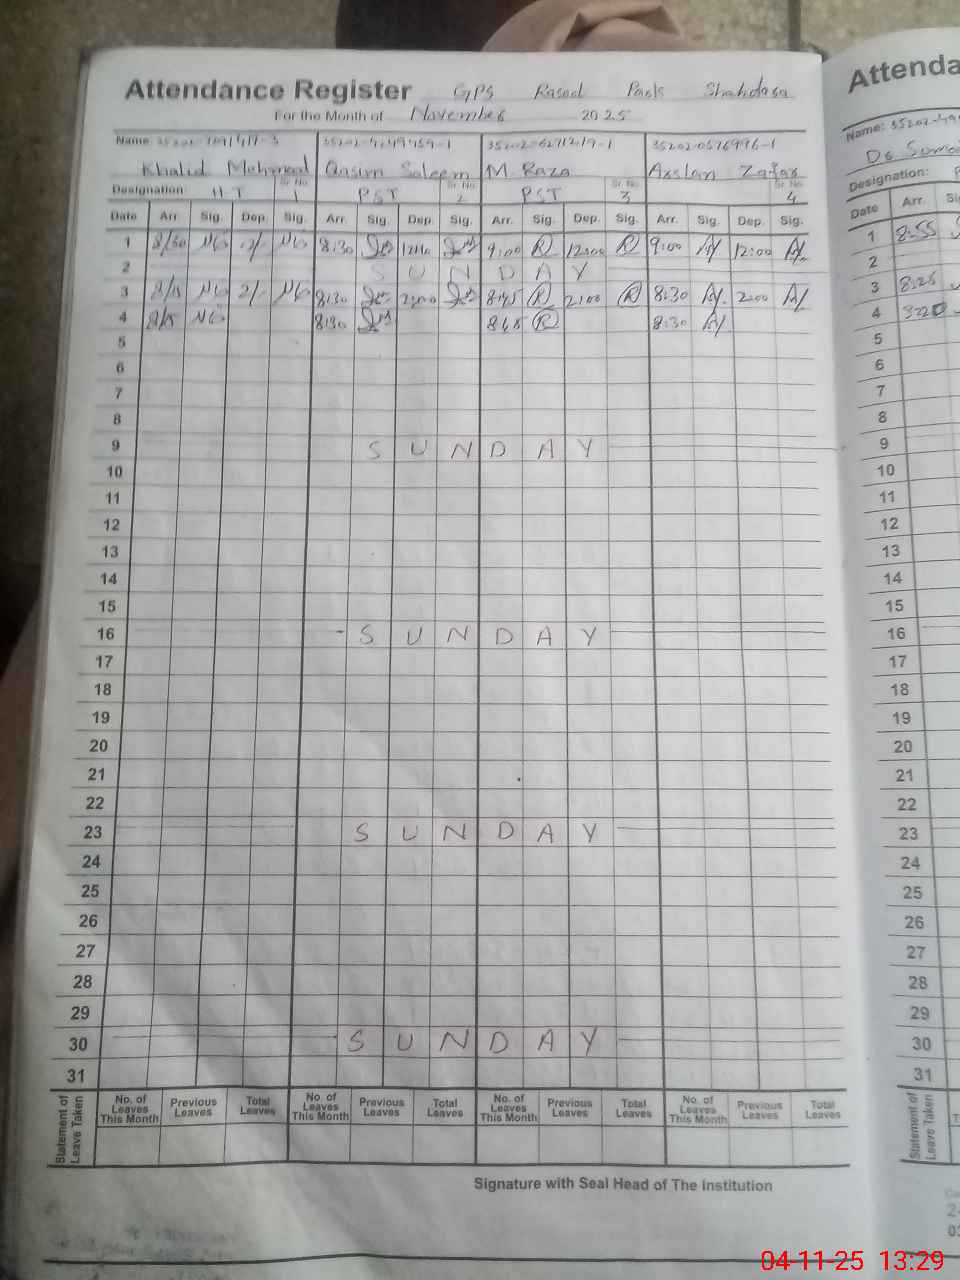 Attendance Register GPS Rasool Park Shahdara
For the Month of November 2025
Name: 35202-0576996-1
Khalid Mehmood Qasim Saleem M. Raza Arslan Zafar
Sr. No. Sr. No. Sr. No. Sr. No.
Designation: HT 1 PST 2 PST 3 4
Date Arr. Sig. Dep. Sig. Arr. Sig. Dep. Sig. Arr. Sig. Dep. Sig. Arr. Sig. Dep. Sig.
1 8/30 8:30 9:00 R 12:00 R 9:00 12:00
2 SUNDAY
3 2/- 8:30 2:00 8:45 R 2:00 R 8:30 2:00
4 8:30 8:45 R 8:30
5
6
7
8
9 SUNDAY
10
11
12
13
14
15
16 SUNDAY
17
18
19
20
21
22
23 SUNDAY
24
25
26
27
28
29
30 SUNDAY
31
Statement of Leave Taken
No. of Leaves This Month Previous Leaves Total Leaves No. of Leaves This Month Previous Leaves Total Leaves No. of Leaves This Month Previous Leaves Total Leaves No. of Leaves This Month Previous Leaves Total Leaves
Signature with Seal Head of The Institution
Attenda
Name:
Designation:
Date Arr.
1 8:55
2
3 8:25
4
5
6
7
8
9
10
11
12
13
14
15
16
17
18
19
20
21
22
23
24
25
26
27
28
29
30
31
Statement of Leave Taken
04-11-25 13:29